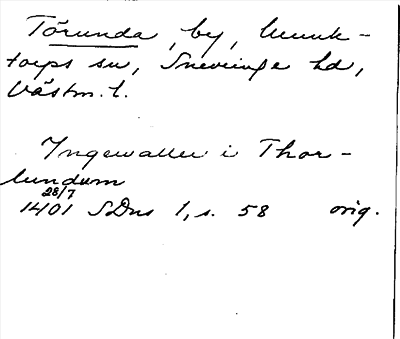 Törunda, by, Munk-
torps sn, Snevringe hd,
Västm. l.
Yngewalle i Thor-
lundum
28/7
1401 SDns 1, s. 58 orig.